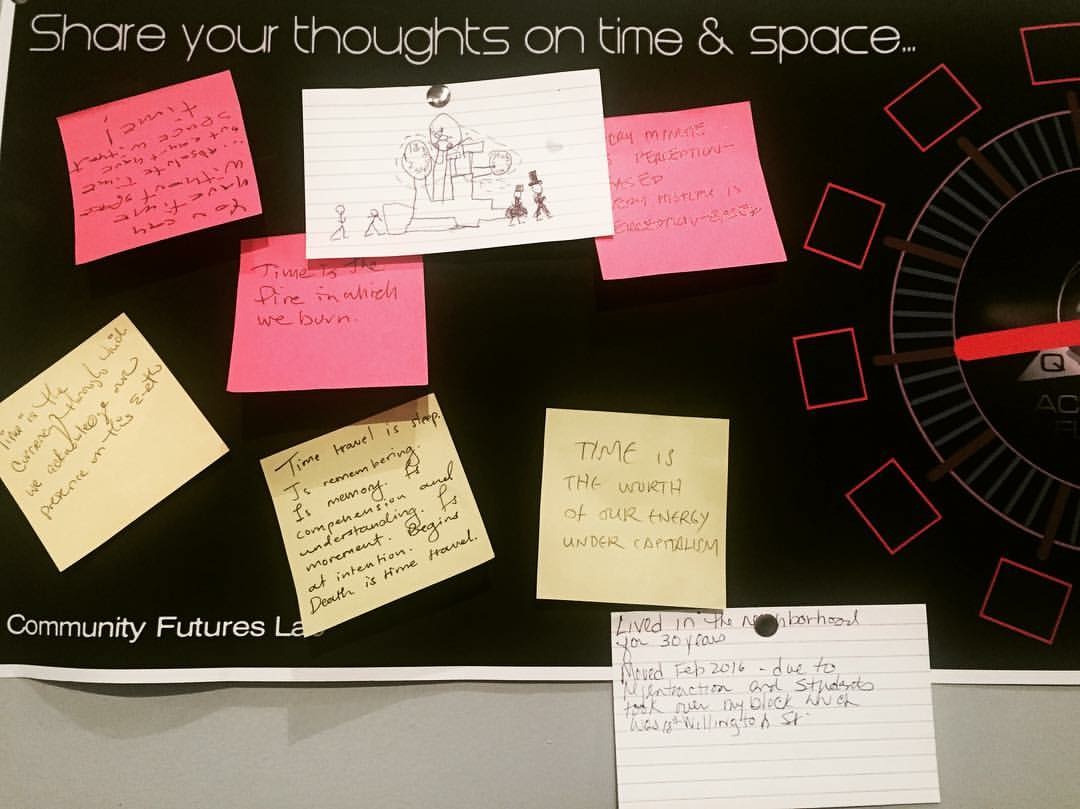 Share your thoughts on time & space...
You can
have time
without space
... absolute time
but can't have
space without
time!
PERCEPTION-
IS
Time is the
fire in which
we burn.
Time is the
currency through which
we acknowledge our
presence on this Earth
Time travel is sleep.
Is remembering.
Is memory. Is
comprehension and
understanding. Is
movement. Begins
at intention.
Death is time travel.
TIME IS
THE WORTH
OF OUR ENERGY
UNDER CAPITALISM
Q
AC
Community Futures La
Lived in the neighborhood
for 30 years
Moved Feb 2016 - due to
and students
took over my block which
was Willington St.